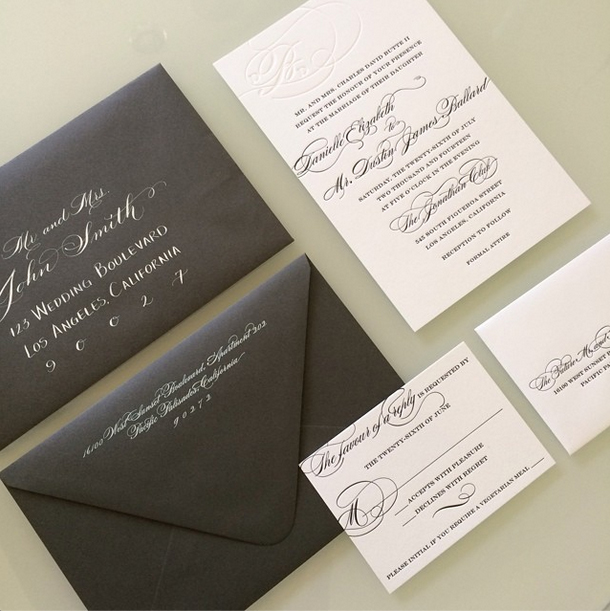 MR. AND MRS. CHARLES DAVID BUTTE II
REQUEST THE HONOUR OF YOUR PRESENCE
AT THE MARRIAGE OF THEIR DAUGHTER
Danielle Elizabeth
to
Mr. Dustin James Ballard
SATURDAY, THE TWENTY-SIXTH OF JULY
TWO THOUSAND AND FOURTEEN
AT FIVE O'CLOCK IN THE EVENING
The Jonathan Club
545 SOUTH FIGUEROA STREET
LOS ANGELES, CALIFORNIA
RECEPTION TO FOLLOW
FORMAL ATTIRE
Mr. and Mrs.
John Smith
123 WEDDING BOULEVARD
LOS ANGELES, CALIFORNIA
9 0 0 2 7
16100 West Sunset Boulevard, Apartment 202
Pacific Palisades, California
90272
The favour of a reply IS REQUESTED BY
THE TWENTY-SIXTH OF JUNE
M
ACCEPTS WITH PLEASURE
DECLINES WITH REGRET
PLEASE INITIAL IF YOU REQUIRE A VEGETARIAN MEAL
The Future Mr. and
16100 WEST SUNSET
PACIFIC PA